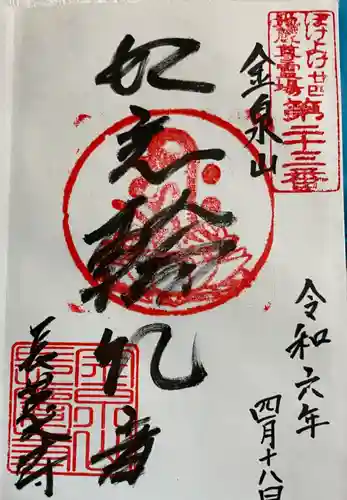 ぼけよけ廿四
地蔵尊霊場
第二十三番
金泉山
如意輪観音
長慶寺
令和六年
四月十八日